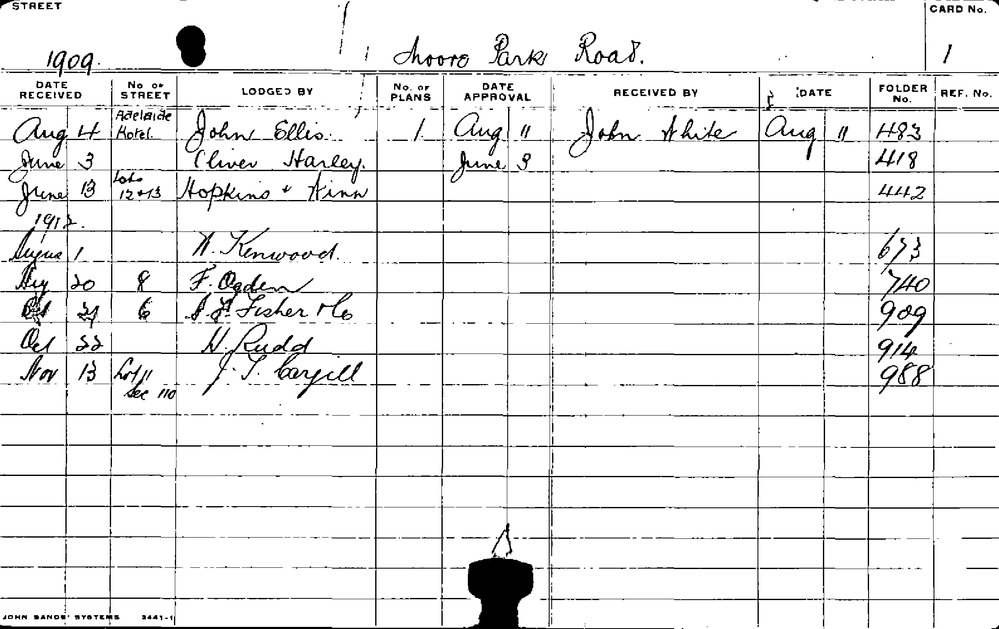 STREET
CARD No.
1909. Moore Park Road. 1
DATE RECEIVED No OF STREET LODGED BY No. OF PLANS DATE APPROVAL RECEIVED BY DATE FOLDER No. REF. No.
Aug 4 Adelaide Hotel. John Ellis. 1 Aug 11 John White Aug 11 483
June 3 Oliver Harley. June 9 418
June 13 Lots 12 & 13 Hopkins & 442
1912.
1 Kenwood. 673
Aug 20 8 F. Ogden 740
6 Fisher & Co 909
Oct 22 H. Rudd 914
Nov 13 Lot 11 J. T. Cargill 988
Sec 110
JOHN SANDS' SYSTEMS 3441-1